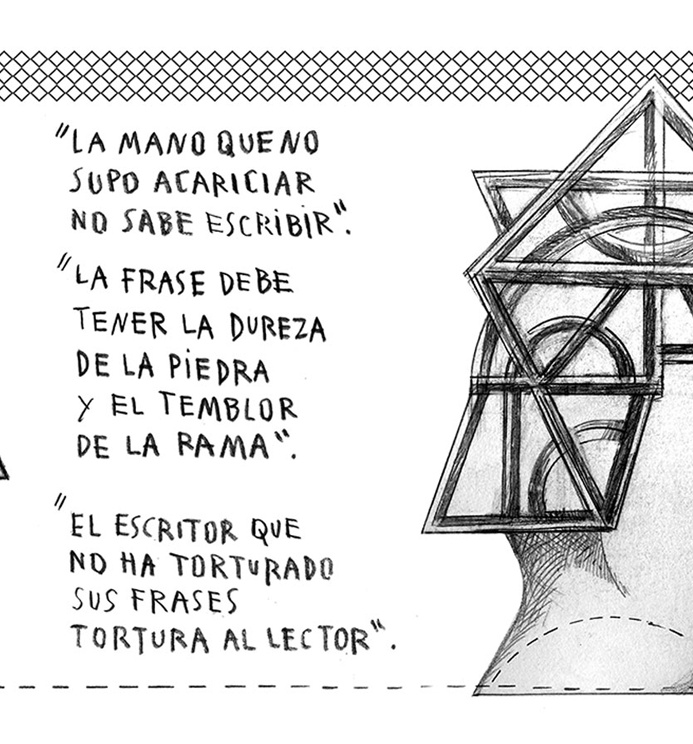 "LA MANO QUE NO
SUPO ACARICIAR
NO SABE ESCRIBIR".
"LA FRASE DEBE
TENER LA DUREZA
DE LA PIEDRA
Y EL TEMBLOR
DE LA RAMA".
"EL ESCRITOR QUE
NO HA TORTURADO
SUS FRASES
TORTURA AL LECTOR".